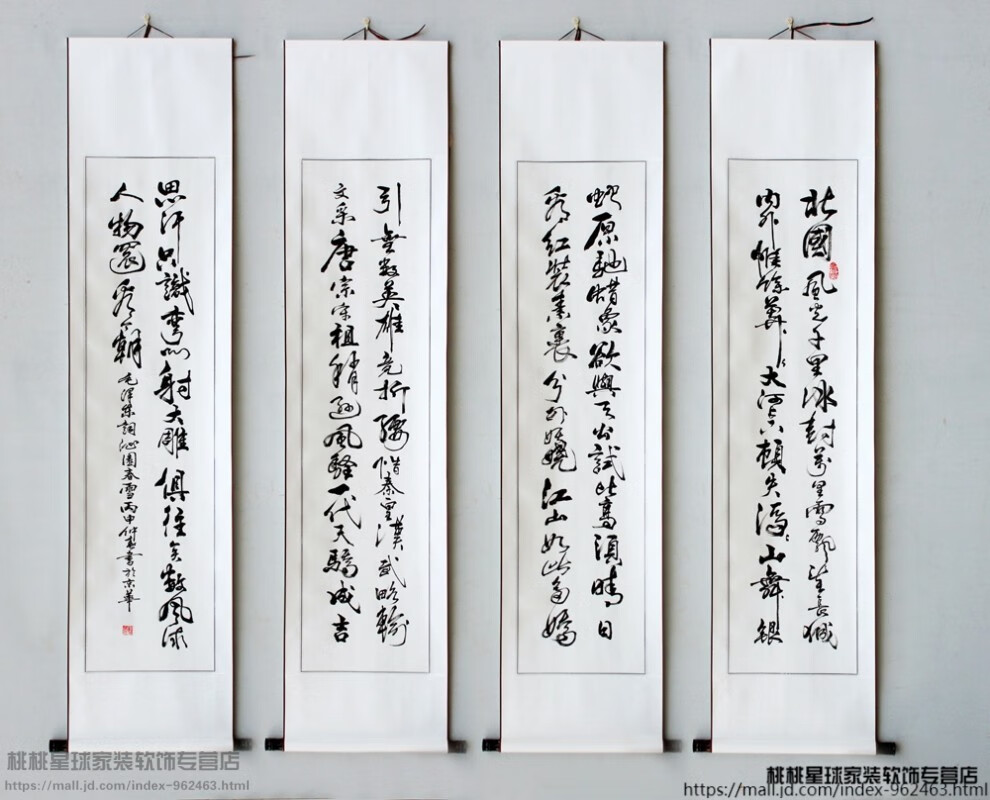 北國風光千里冰封萬里雪飄望長城
內外惟餘莽々大河上下頓失滔々山舞銀
蛇原馳蜡象欲與天公試比高須晴日
看紅裝素裹分外妖嬈江山如此多嬌
引無數英雄竞折腰惜秦皇漢武略輸
文采唐宗宋祖稍遜風騷一代天驕成吉
思汗只識彎弓射大雕俱往矣數風流
人物還看今朝 毛澤東詞沁園春雪丙申仲書於京華
桃桃星球家装软饰专营店
https://mall.jd.com/index-962463.html
桃桃星球家装软饰专营店
https://mall.jd.com/index-962463.html